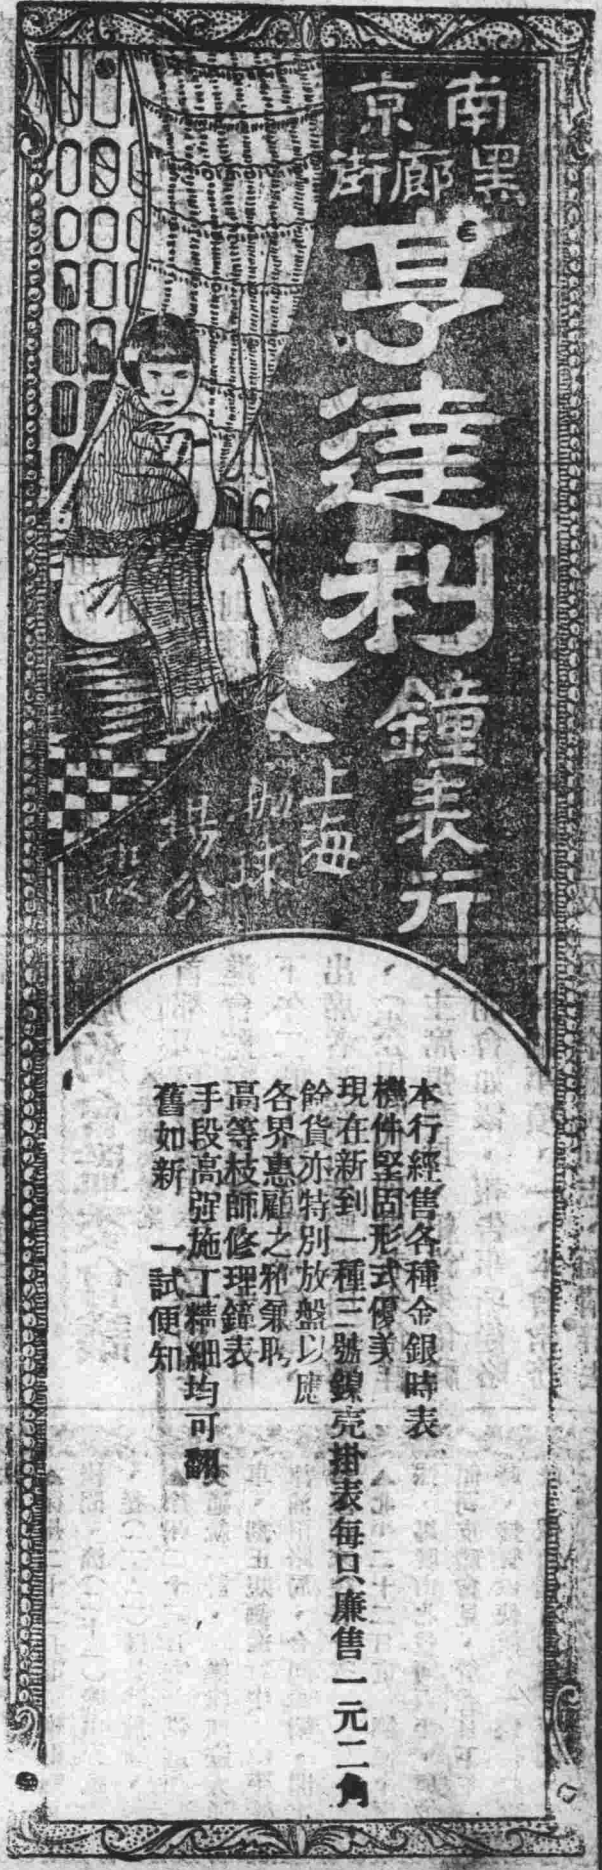 南京
黑廊街
亨達利
鐘表行
上海
本行經售各種金銀時表
機件堅固形式優美
現在新到一種三號鎳亮掛表每只廉售一元二角
餘貨亦特別放盤以應
各界惠顧之雅兼聘
高等枝師修理鐘表
手段高强施工精細均可翻
舊如新 一試便知